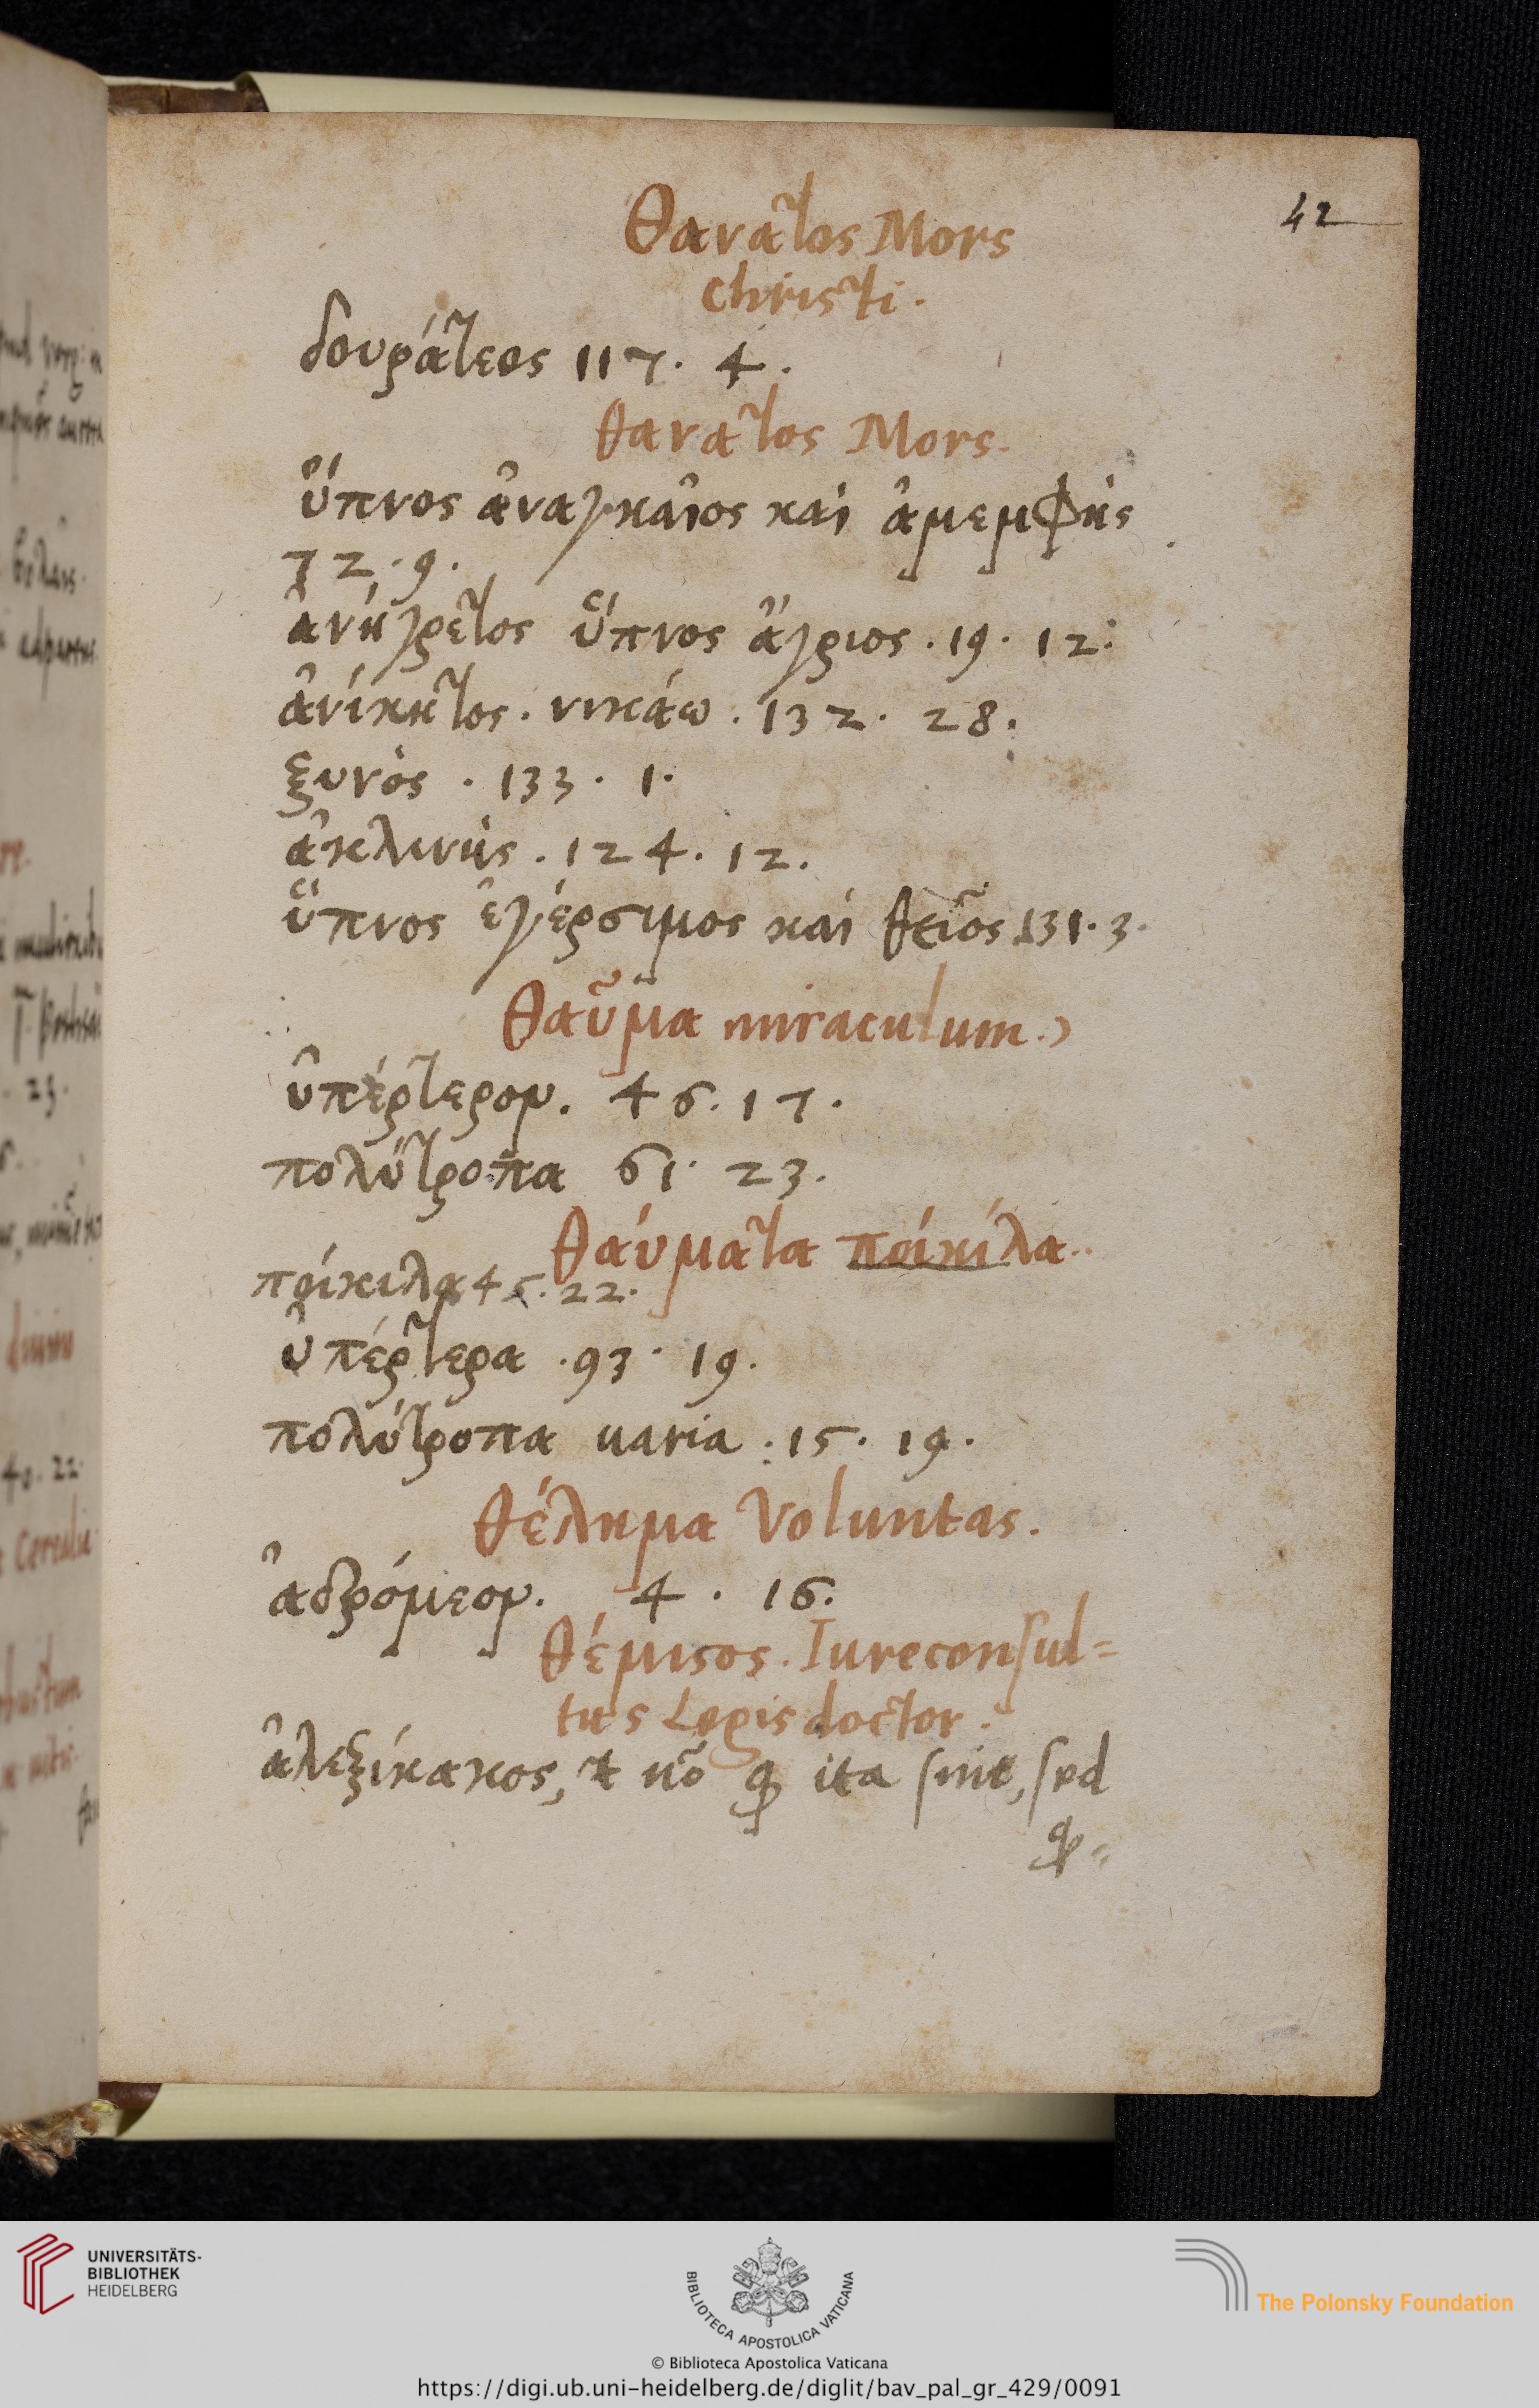 42
Θανατος Mors
Christi.
δουράτεος 117. 4.
θανατος Mors.
ὕπνος ἀναγκαῖος καὶ ἀμεμφὴς
72.9.
ἀνήγρετος ὕπνος ἄγριος. 19. 12.
ἀνίκητος. νικάω. 132. 28.
ξυνὸς. 133. 1.
ἀκλινὴς. 124. 12.
ὕπνος ἐγέρσιμος καὶ θεῖος 131. 3.
Θαῦμα miraculum.
ὑπέρτερον. 46. 17.
πολύτροπα 61. 23.
θαύματα ποίκίλα..
ποίκιλα 45. 22.
ὑπέρτερα. 93. 19.
πολύτροπα uaria. 15. 19.
θέλημα Voluntas.
ἀδρόμεον. 4. 16.
θέμιςος. Iureconſul=
tus Legis doctor.
ἀλεξίκακος, ita ſnit, ſed
UNIVERSITÄTS-
BIBLIOTHEK
HEIDELBERG
BIBLIOTECA APOSTOLICA VATICANA
The Polonsky Foundation
© Biblioteca Apostolica Vaticana
https://digi.ub.uni-heidelberg.de/diglit/bav_pal_gr_429/0091